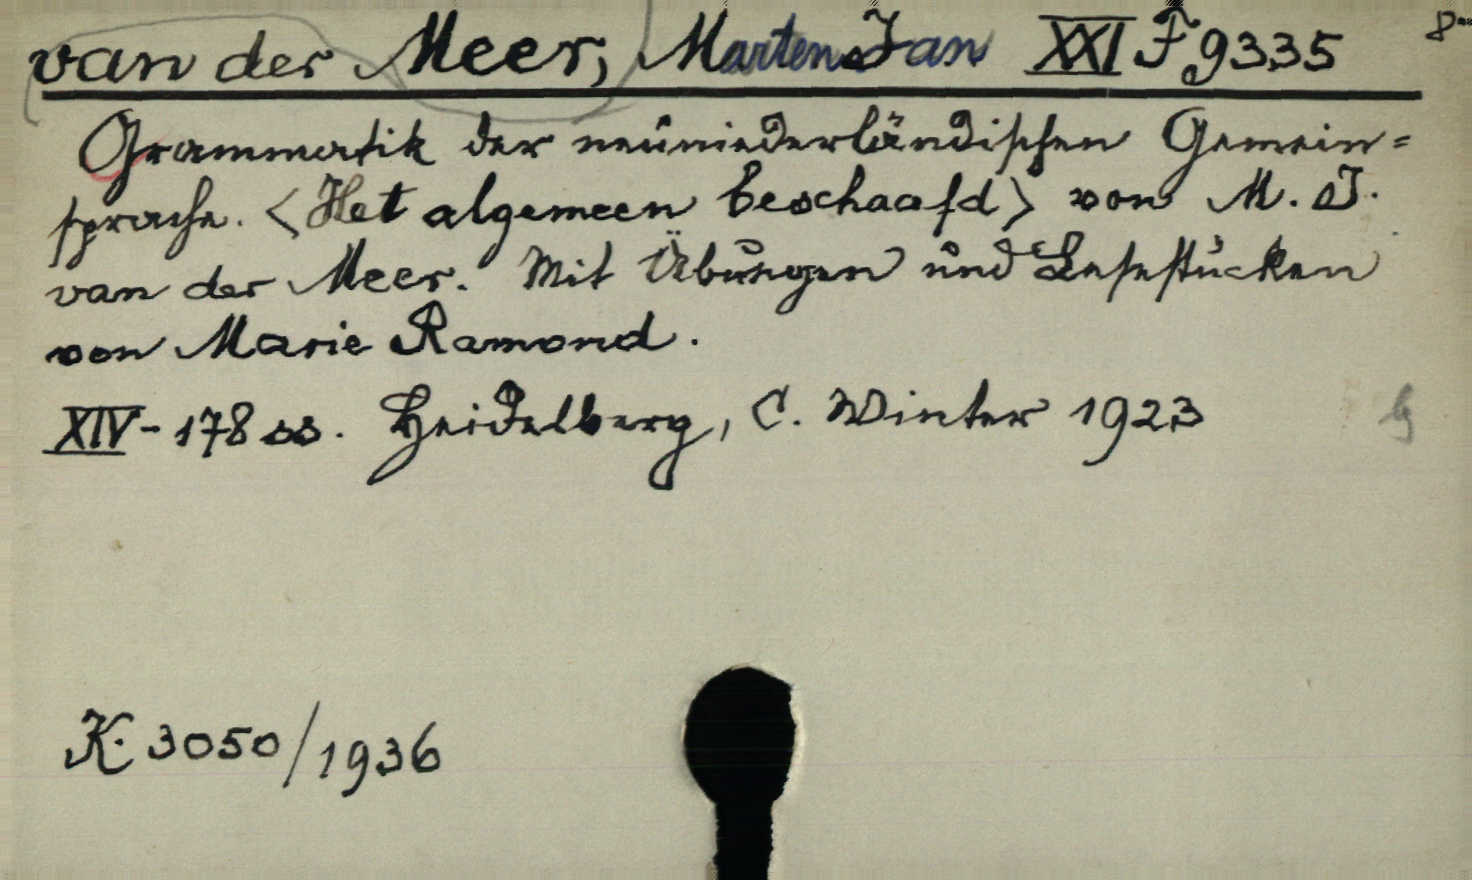 van der Meer, Marten Jan XXI F 9335 8°
Grammatik der neuniederländischen Gemein=
sprache. <Het algemeen beschaafd> von M. J.
van der Meer. Mit Übungen und Lesestücken
von Marie Ramond.
XIV-178 ss. Heidelberg, C. Winter 1923
K. 3050/1936